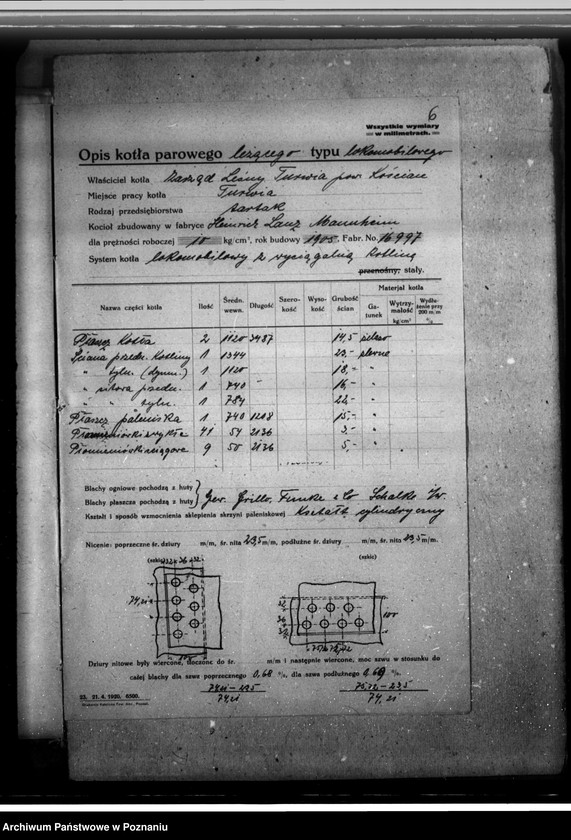 6
Wszystkie wymiary
w milimetrach.
Opis kotła parowego leżącego typu lokomobilowego
Właściciel kotła Zarząd Leśny Turwia pow. Kościan
Miejsce pracy kotła Turwia
Rodzaj przedsiębiorstwa tartak
Kocioł zbudowany w fabryce Heinrich Lanz Mannheim
dla prężności roboczej 10 kg/cm², rok budowy 1905, Fabr. No. 16997
System kotła lokomobilowy z wyciągalną
przenośny, stały.
Nazwa części kotła Ilość Średn. wewn. Długość Szerokość Wysokość Grubość ścian Materjał kotła Gatunek Wytrzymałość kg/cm² Wydłużenie przy 200 m/m %
Płaszcz kotła 2 1120 3487 14,5 żelazo
Ściana przedn. 1 1344 23,- zlewne
" tyln. (dymn.) 1 1120 18,- "
" sitowa przedn. 1 740 - 16,- "
" " tyln. 1 784 22,- "
Płaszcz paleniska 1 740 1208 15,- "
Płomieniówki zwykłe 41 54 2136 3,- "
Płomieniówki 9 50 2136 5,- "
Blachy ogniowe pochodzą z huty
Blachy płaszcza pochodzą z huty
Gew. Grillo, Funke & Co Schalke i/w.
Kształt i sposób wzmocnienia sklepienia skrzyni paleniskowej Kształt cylindryczny
Nicenie: poprzeczne śr. dziury m/m, śr. nita 23,5 m/m, podłużne śr. dziury m/m, śr. nita 23,5 m/m.
(szkic) (szkic)
74,21
100
32
36
32
100
Dziury nitowe były wiercone, tłoczone do śr. m/m i następnie wiercone, moc szwu w stosunku do
całej blachy dla szwu poprzecznego 0,68 %, dla szwa podłużnego 0,69 %.
74,21 – 23,5
74,21
75,72 – 23,5
74,21
23. 21. 4. 1920. 6500.
Archiwum Państwowe w Poznaniu